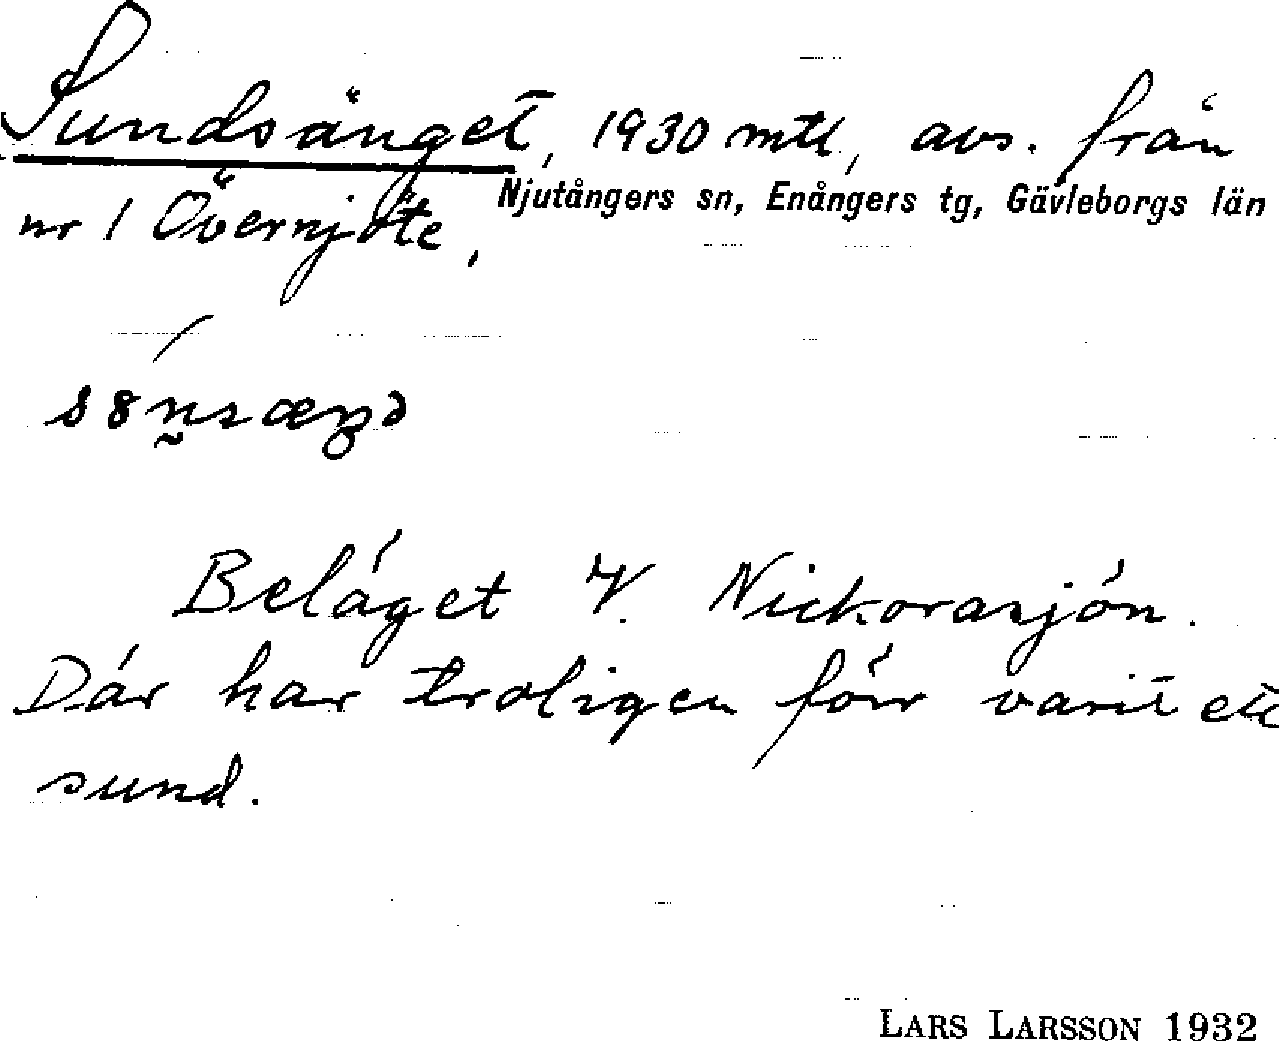 Sundsänget, 1930 mtl, avs. från
Njutångers sn, Enångers tg, Gävleborgs län
nr 1 Övernjöte,
Beläget V. Nickorasjön.
Där har troligen förr varit ett
sund.
LARS LARSSON 1932